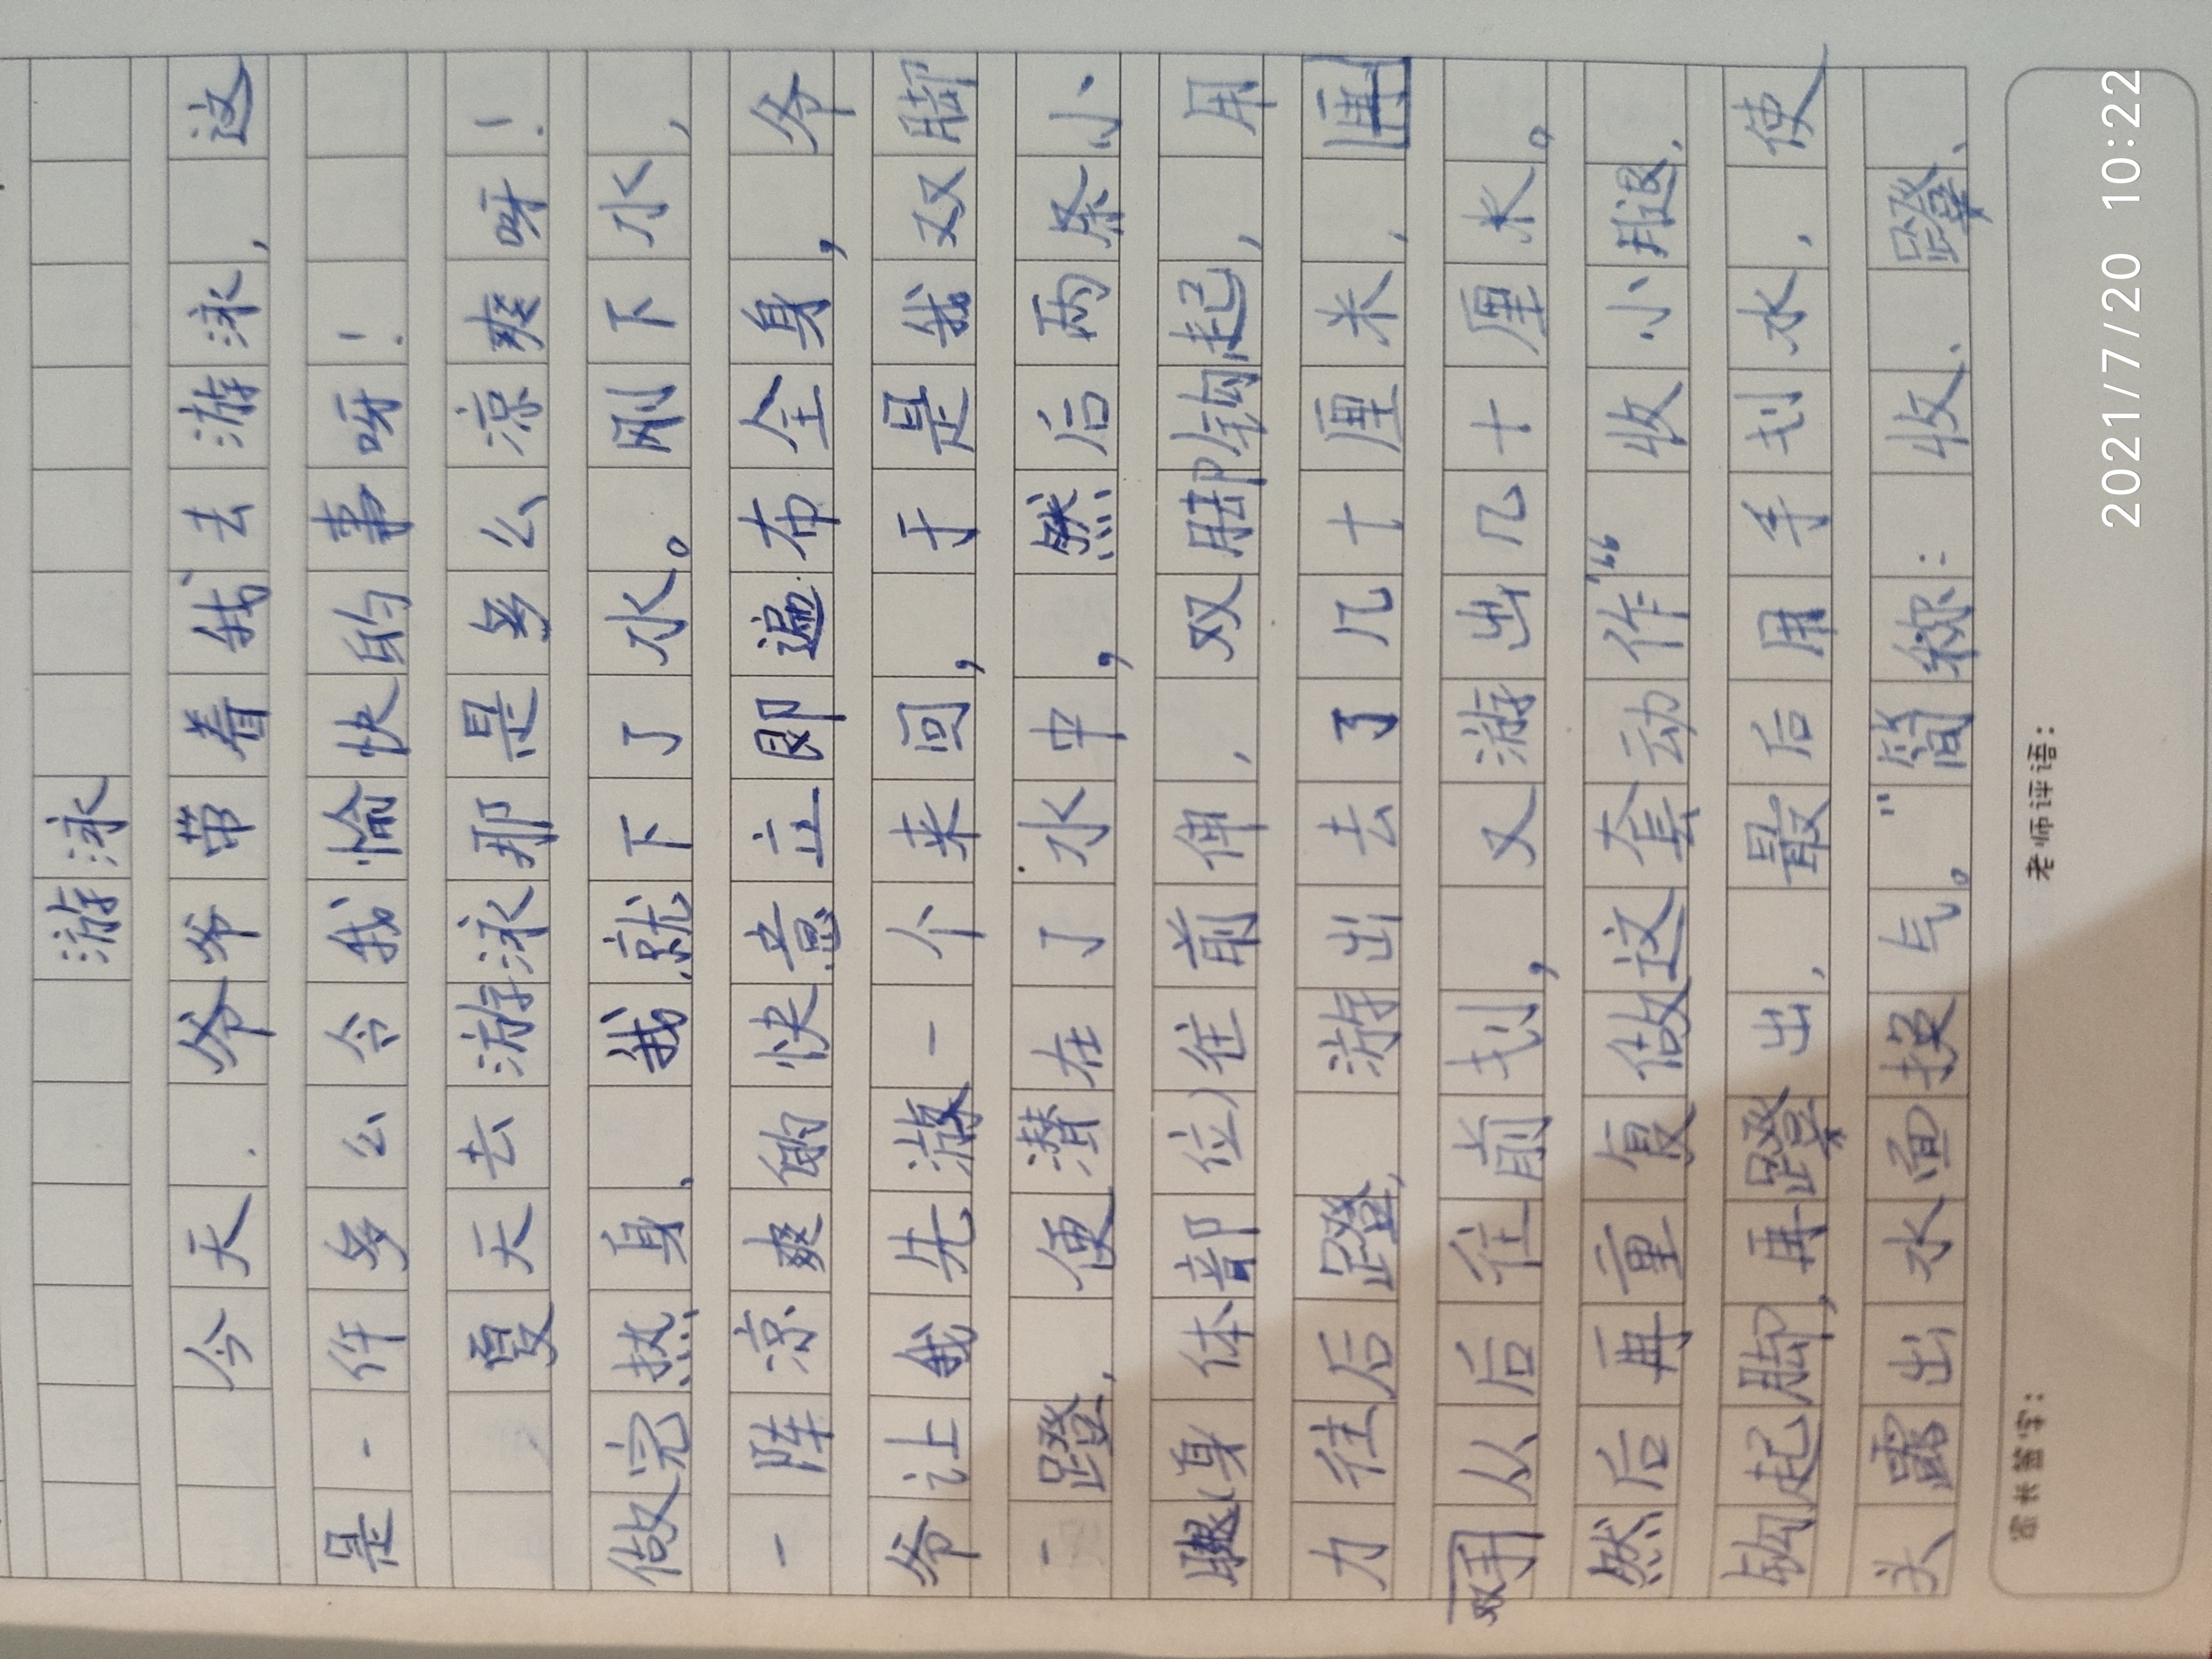 游泳
今天，爷爷带着我去游泳，这
是一件多么令我愉快的事呀！
夏天去游泳那是多么凉爽呀！
做完热身，我就下了水。刚下水，
一阵凉爽的快意立即遍布全身，爷
爷让我先游一个来回，于是我双脚
一蹬，便潜在了水中，然后两条小
腿（身体部位）往前伸，双脚钩起，用
力往后蹬，游出去了几十厘米，再用
双手从后往前划，又游出几十厘米。
然后再重复做这套动作“收小腿，
钩起脚，再蹬出，最后用手划水，使
头露出水面换气。”简称：收、蹬、
家长签字：
老师评语：
2021/7/20 10:22